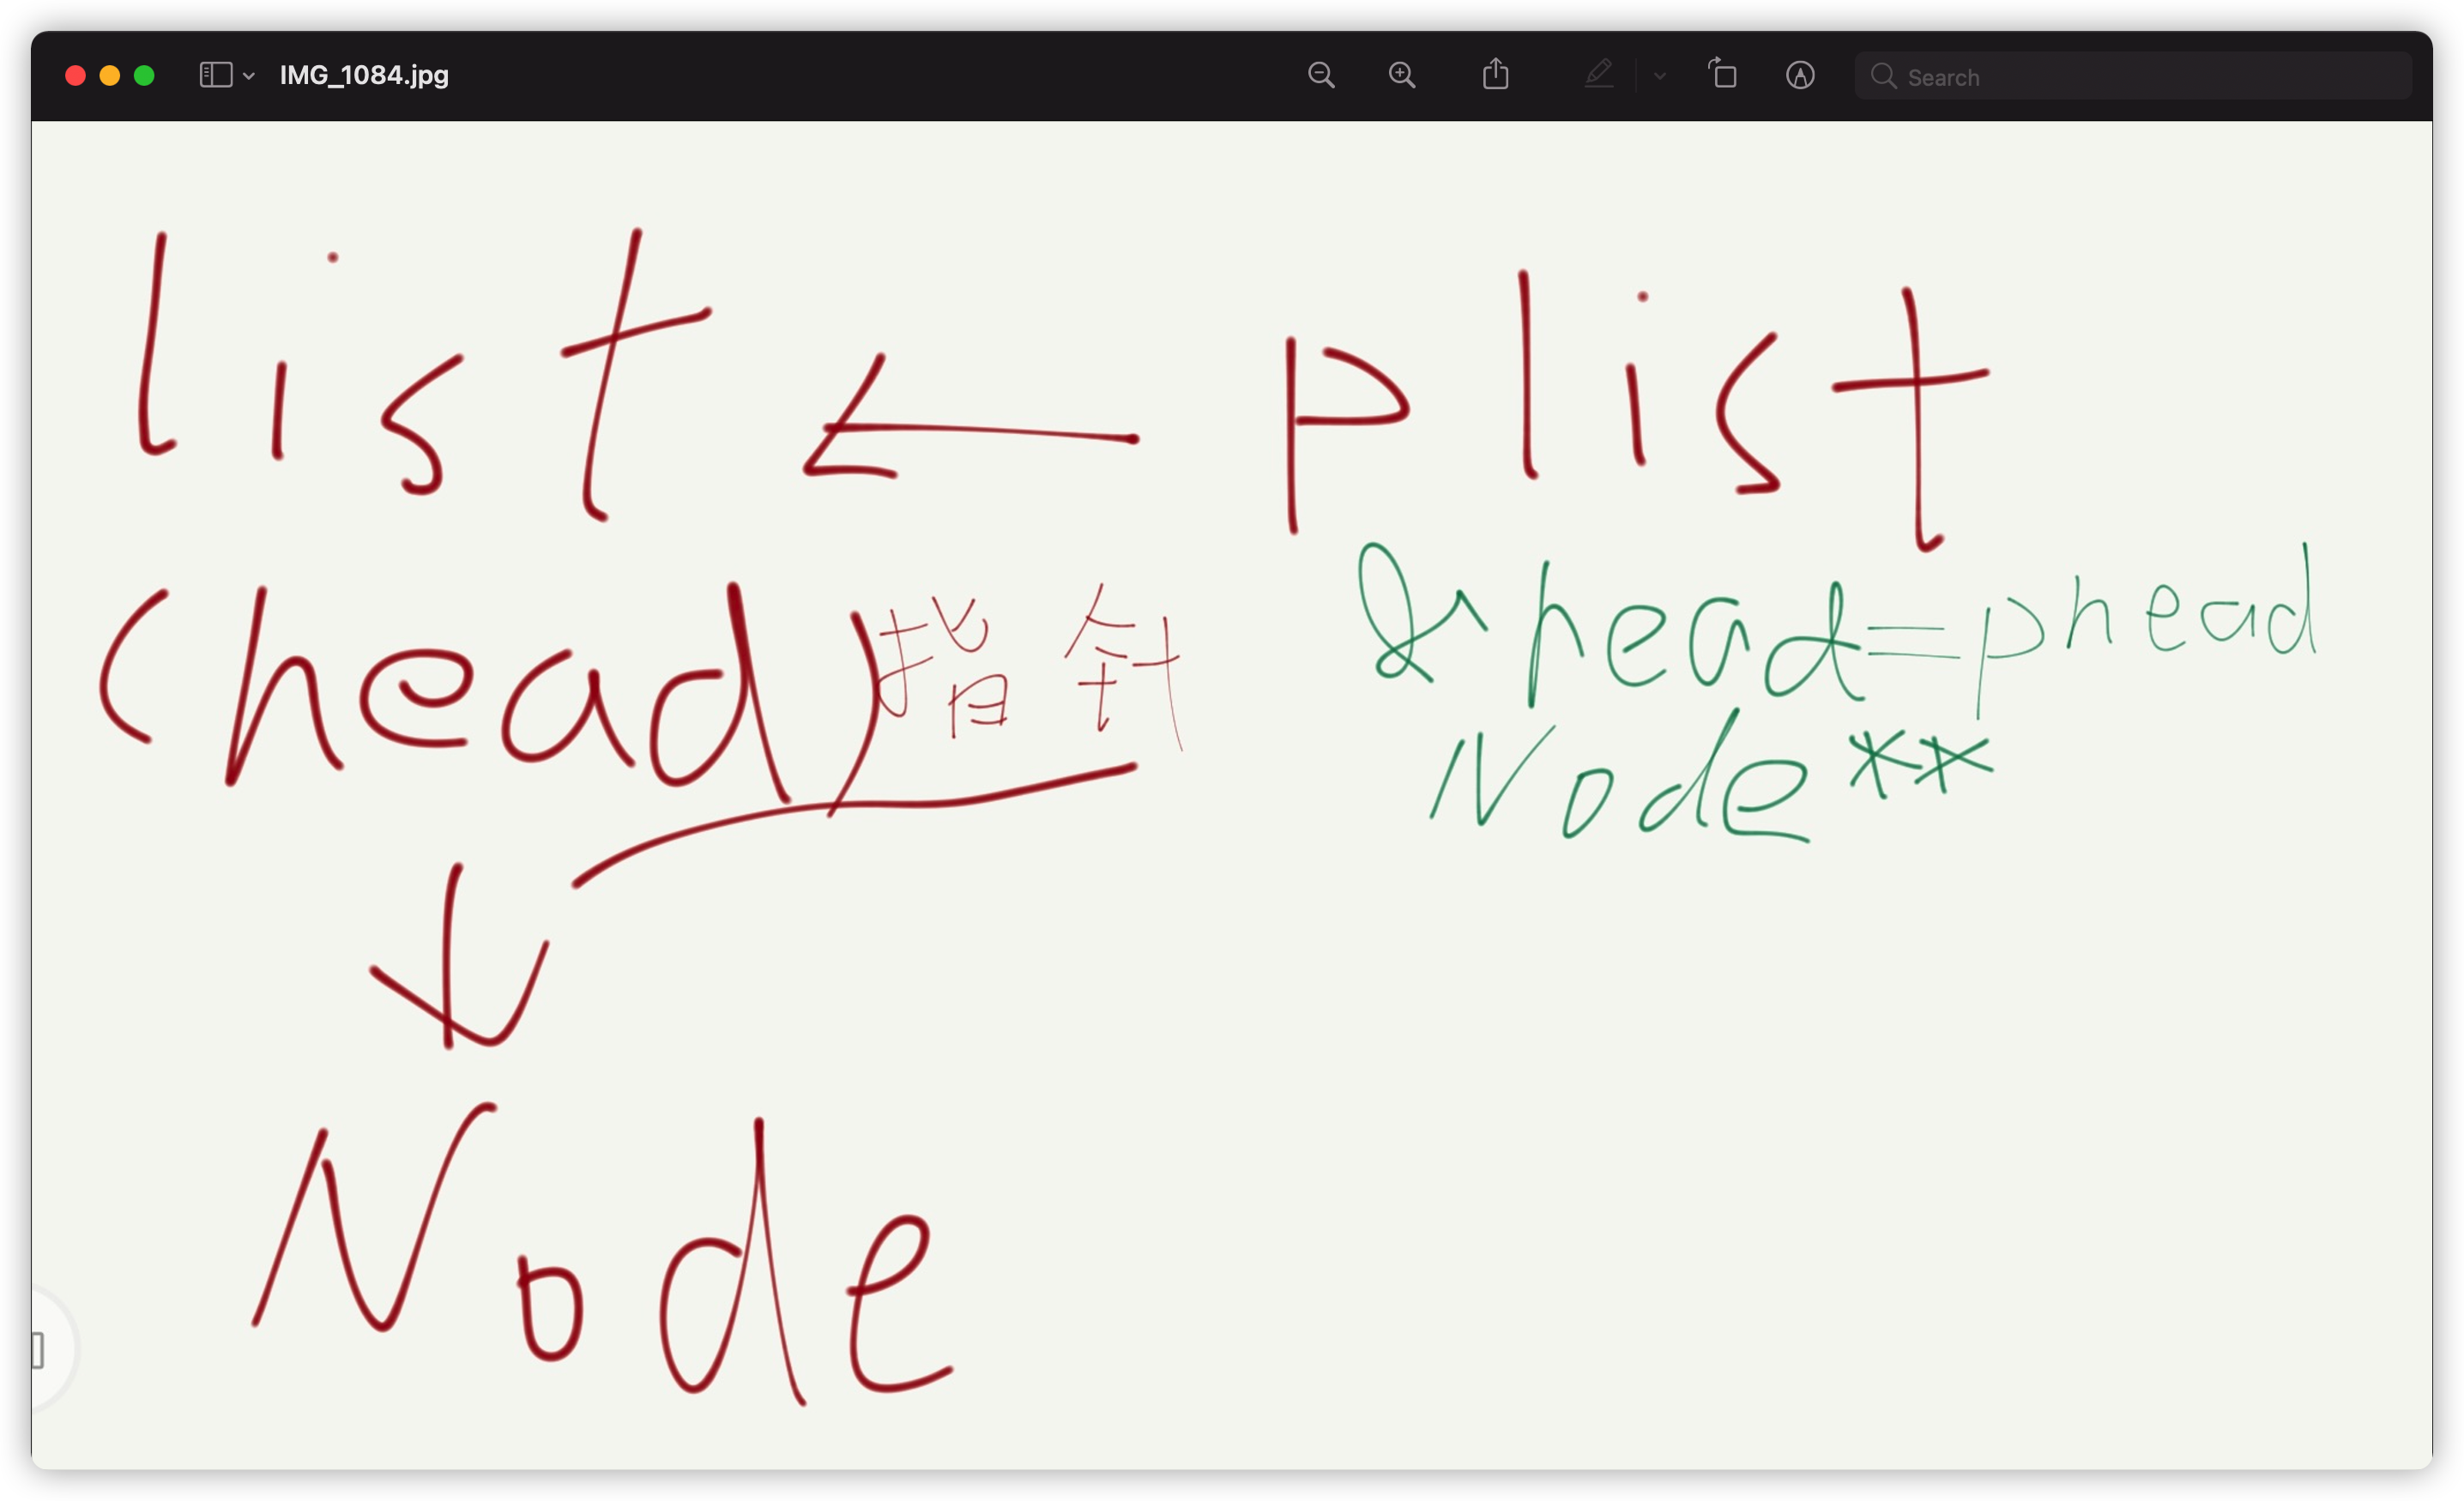 IMG_1084.jpg
Search
list ← plist
(head)指针 &head=phead
Node**
Node